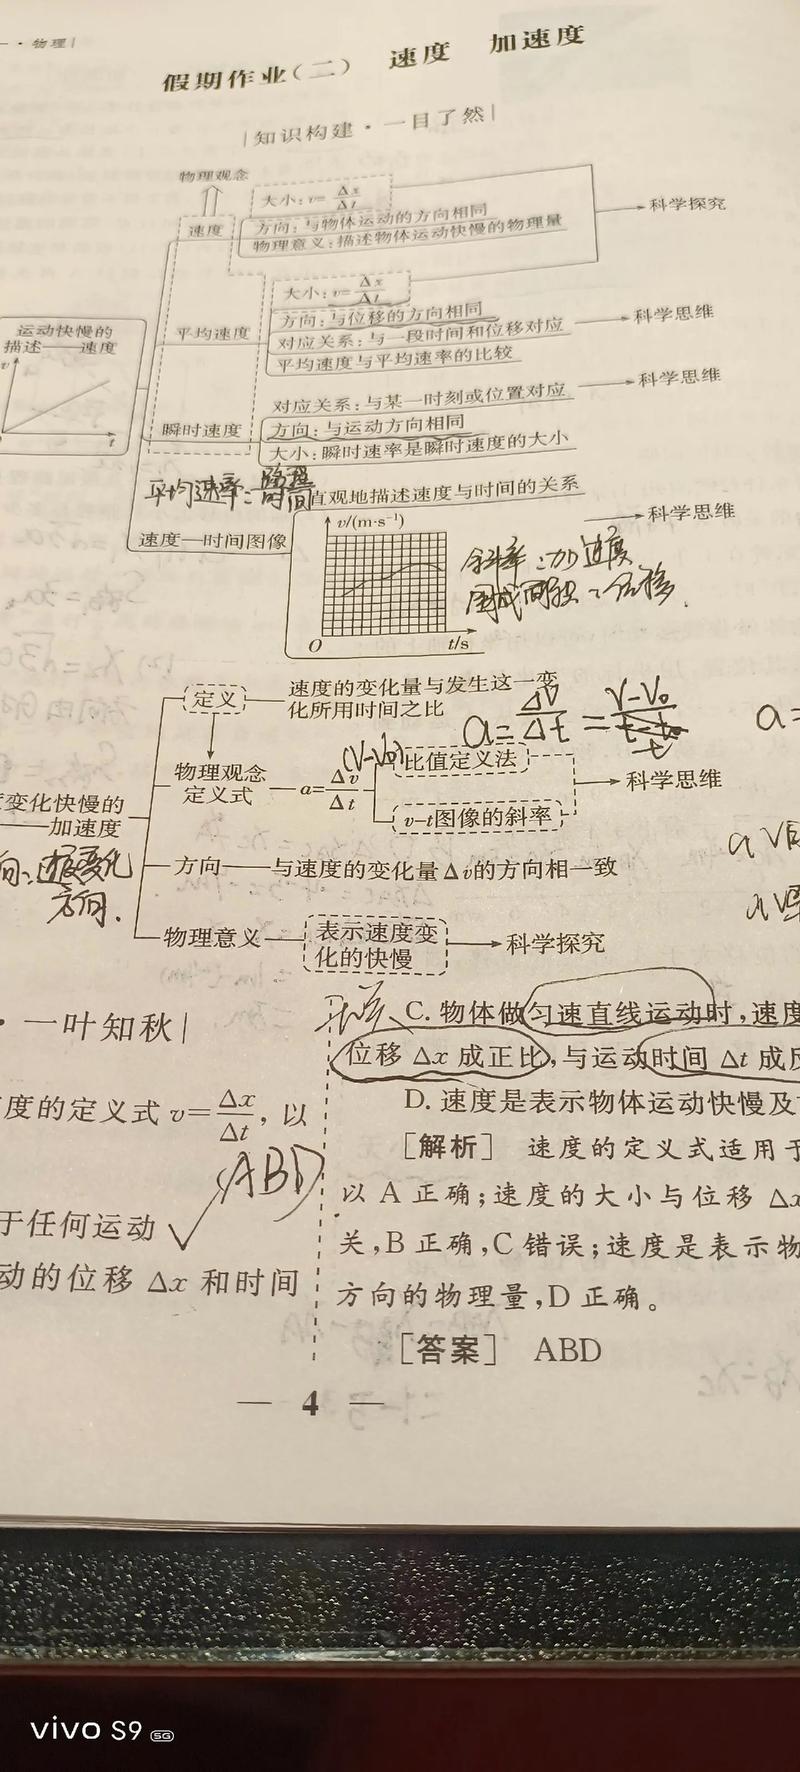 一·物理|
假期作业(二) 速度 加速度
|知识构建·一目了然|
物理观念
大小:v=Δx/Δt
速度
方向:与物体运动的方向相同
物理意义:描述物体运动快慢的物理量
科学探究
大小:v=Δx/Δt
运动快慢的
描述——速度
v
t
平均速度
方向:与位移的方向相同
对应关系:与一段时间和位移对应
平均速度与平均速率的比较
科学思维
对应关系:与某一时刻或位置对应
科学思维
瞬时速度
方向:与运动方向相同
大小:瞬时速率是瞬时速度的大小
平均速率:路程/时间
直观地描述速度与时间的关系
科学思维
速度—时间图像
v/(m·s⁻¹)
O
t/s
斜率:加速度
位移
定义
速度的变化量与发生这一变
化所用时间之比
a=ΔV/Δt=V-V₀/t
a=
物理观念
定义式
a=Δv/Δt
(V-V₀)
比值定义法
v-t图像的斜率
科学思维
度变化快慢的
——加速度
方向——与速度的变化量Δv的方向相一致
向:速度变化
方向.
物理意义
表示速度变
化的快慢
科学探究
·一叶知秋|
度的定义式v=Δx/Δt,以
ABD
于任何运动
动的位移Δx和时间
C.物体做匀速直线运动时,速度
位移Δx成正比,与运动时间Δt成反
D.速度是表示物体运动快慢及
[解析] 速度的定义式适用于
以A正确;速度的大小与位移Δx
关,B正确,C错误;速度是表示物
方向的物理量,D正确。
[答案] ABD
— 4 —
vivo S9 5G